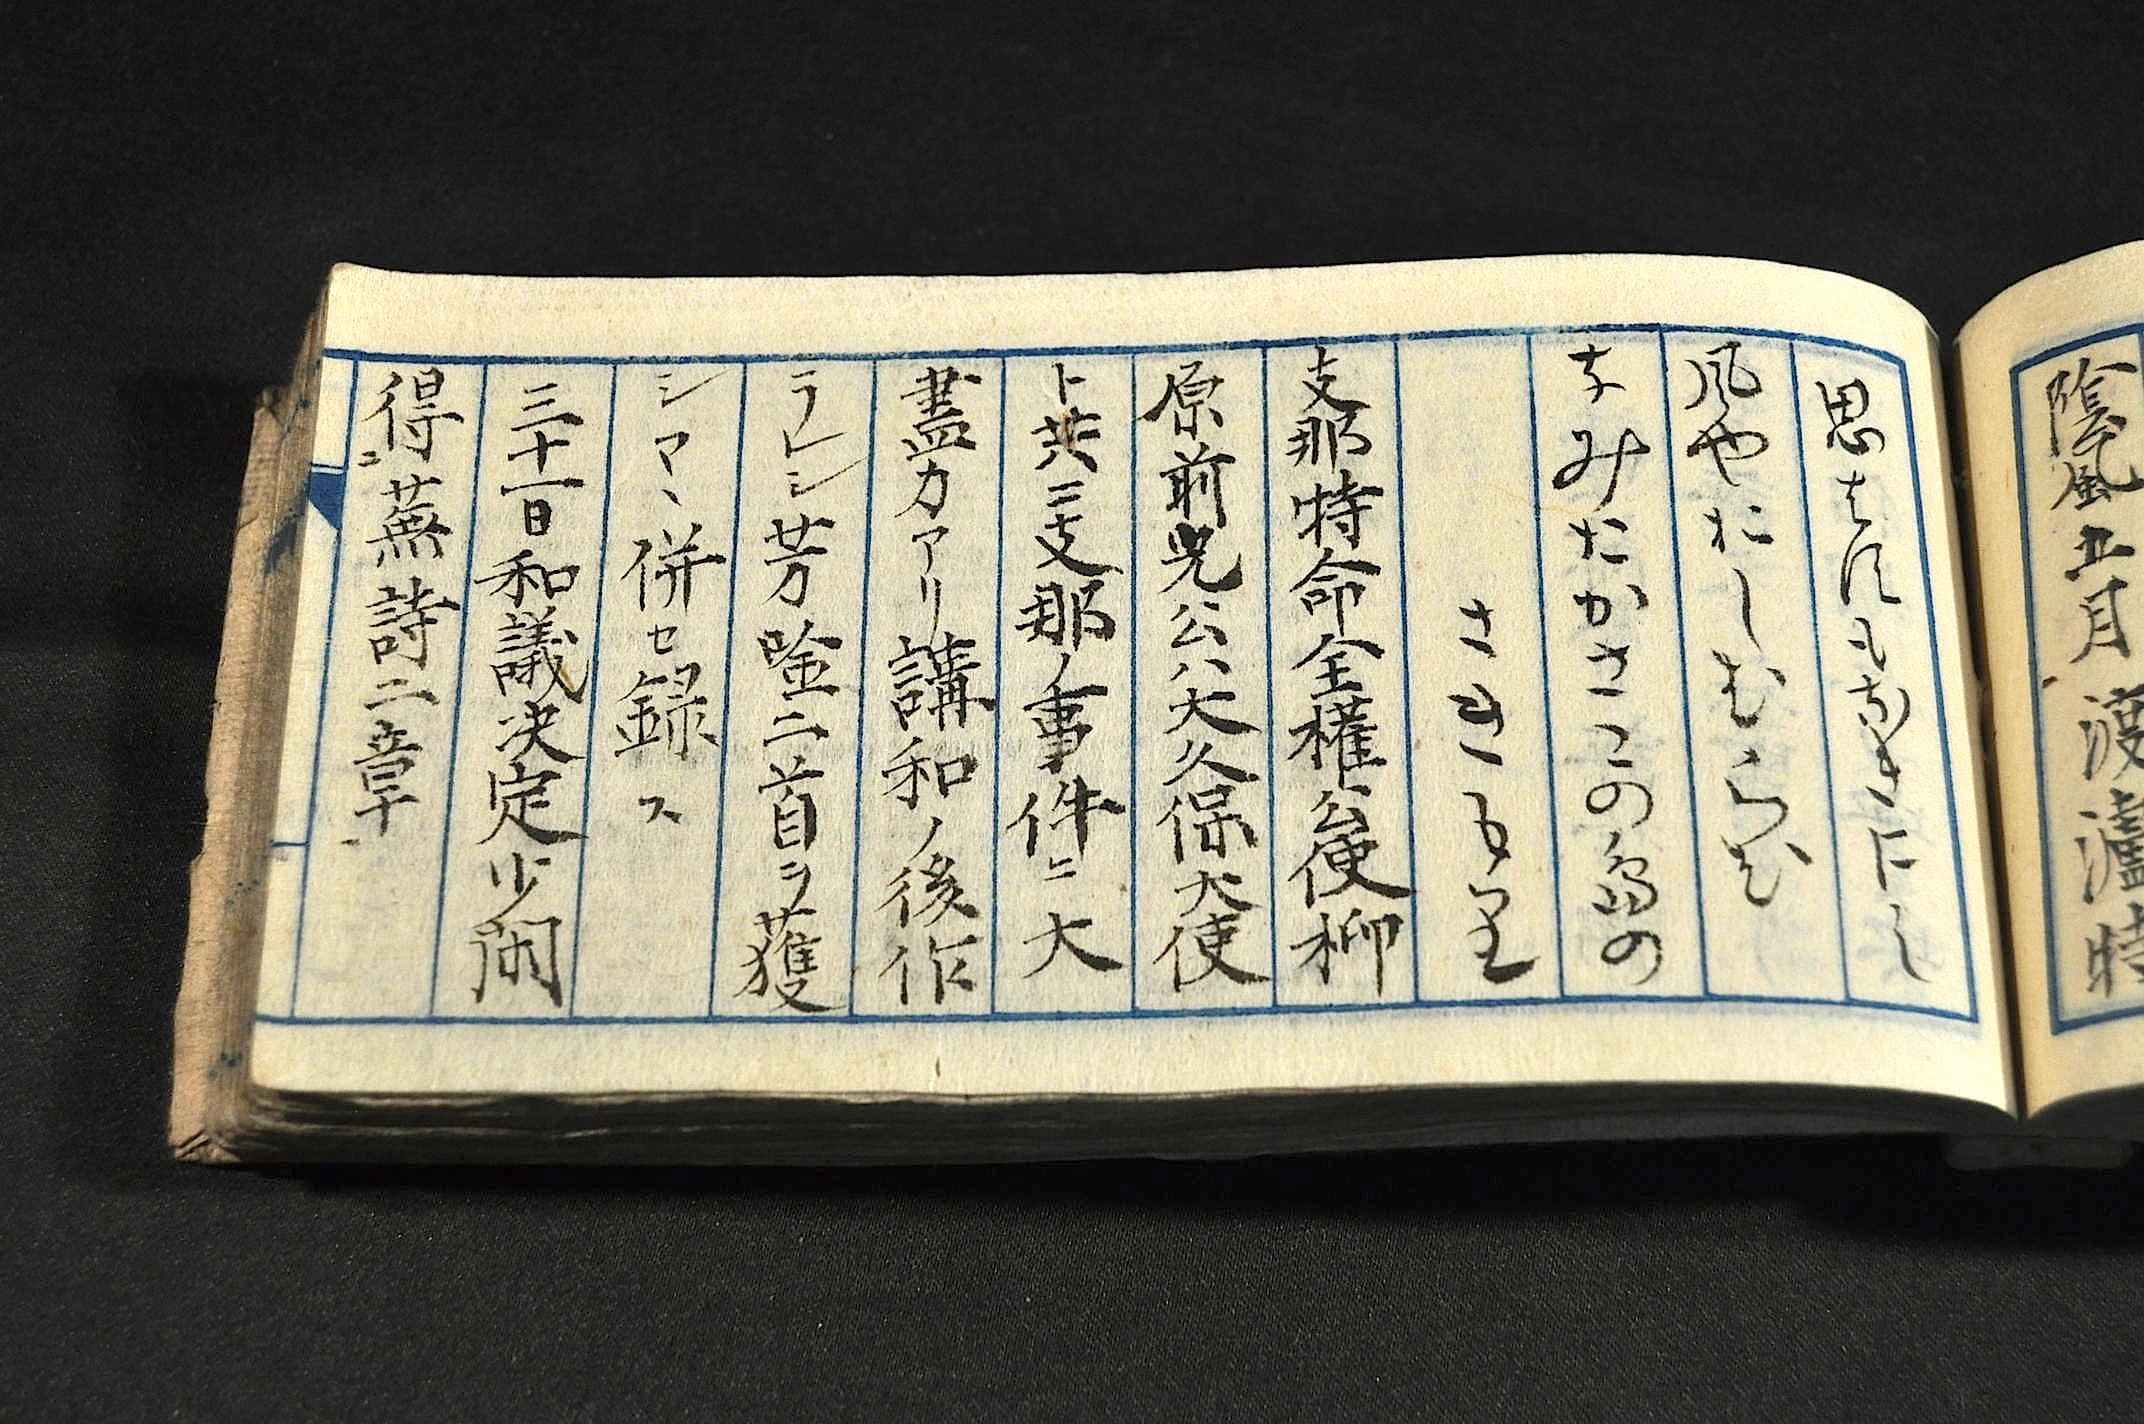 陰風五月渡瀘特
思はぬもなきにし
風やたしむらむ
なみたかさこの島の
さきもり
支那特命全権公使柳
原前光公ハ大久保大使
ト共ニ支那ノ事件ニ大
盡力アリ講和ノ後作
ラレシ芳唫二首ヲ獲
シマヽ併セ録ス
三十一日和議决定少間
得蕪詩二章